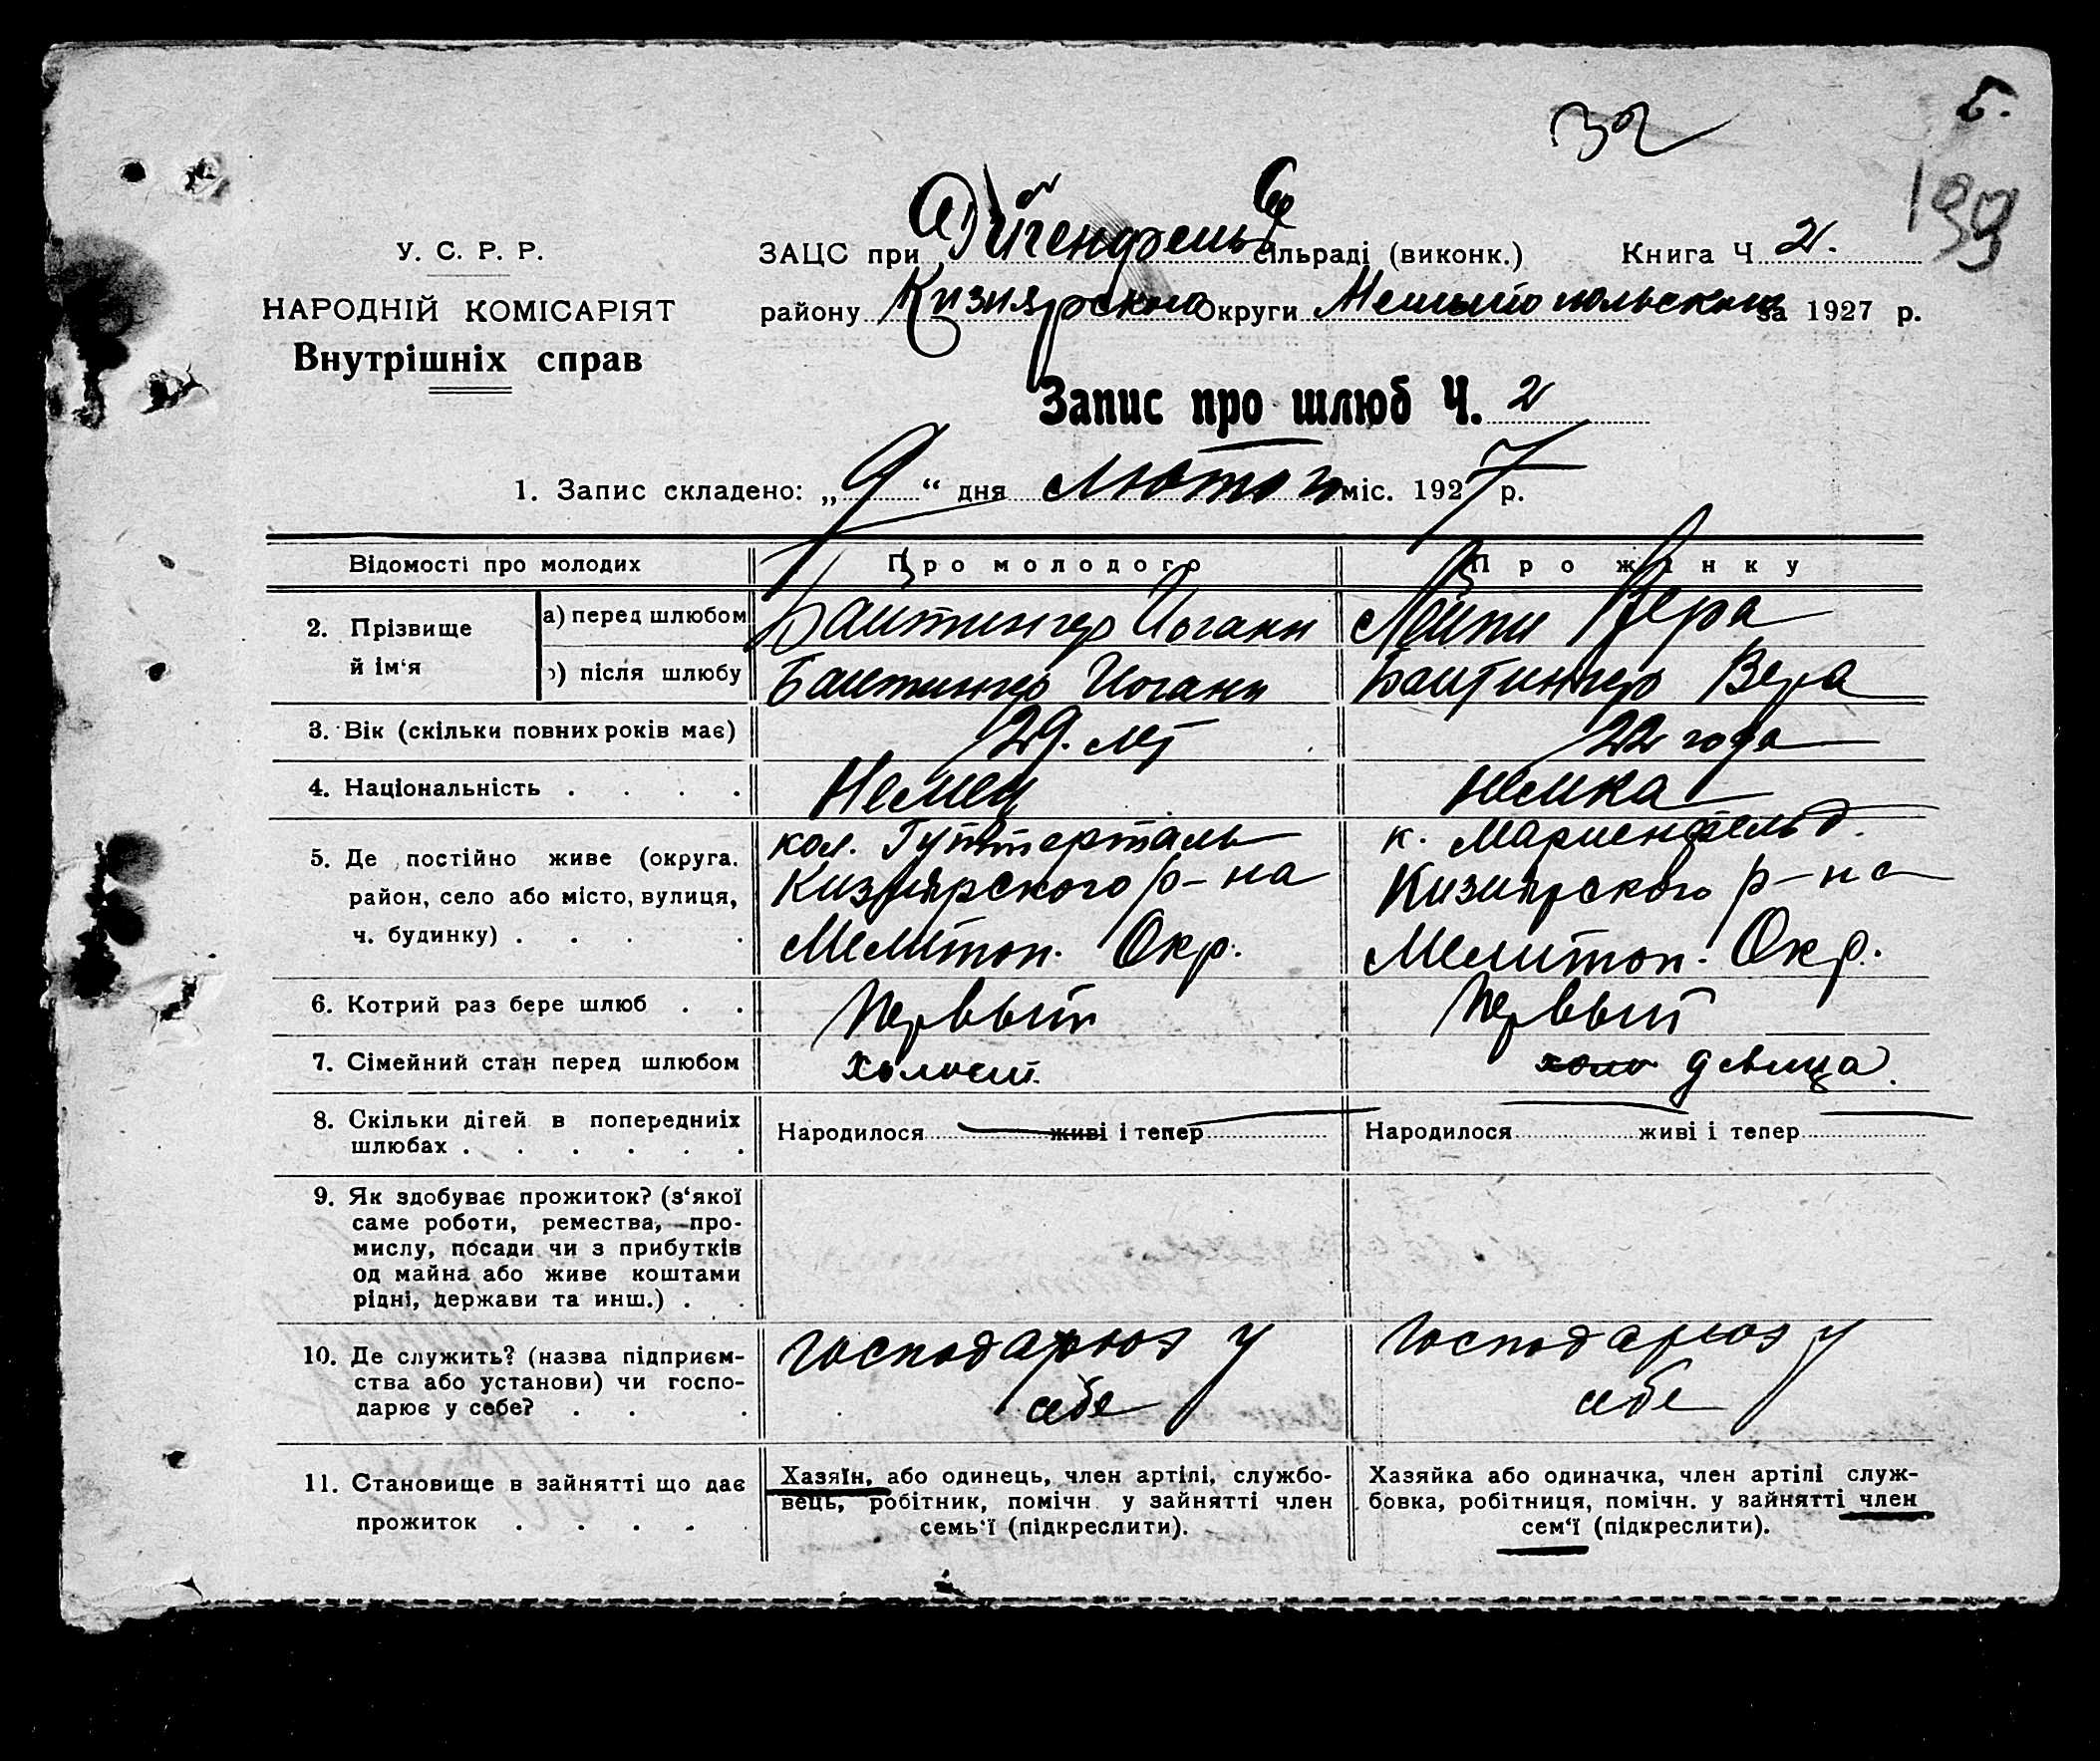 32
5.
199
У. С. Р. Р.
НАРОДНІЙ КОМІСАРІЯТ
Внутрішніх справ
ЗАЦС при Айгенфельд сільраді (виконк.) Книга Ч 2.
району Кизиярского Округи за 1927 р.
Запис про шлюб Ч. 2
1. Запис складено: „9“ дня лютого міс. 1927 р.
Відомості про молодих Про молодого Про жінку
2. Прізвище й ім‘я
а) перед шлюбом Баитингер Иоганн Вера
б) після шлюбу Баитингер Иоганн Баитингер Вера
3. Вік (скільки повних років має) 29. лет 22 года
4. Національність . . . . Немец немка
5. Де постійно живе (округа, район, село або місто, вулиця, ч. будинку) . . . .
кол. Гуттерталь к. Мариенфельд.
Кизиярского р-на Кизиярского р-на
Мелитоп. Окр. Мелитоп. Окр.
6. Котрий раз бере шлюб . . Первый Первый
7. Сімейний стан перед шлюбом холост. холо девица.
8. Скільки дітей в попередниіх шлюбах . . . . . .
Народилося живі і тепер Народилося живі і тепер
9. Як здобуває прожиток? (з‘якої
саме роботи, ремества, про-
мислу, посади чи з прибутків
од майна або живе коштами
рідні, держави та инш.) . .
10. Де служить? (назва підприєм-
ства або установи) чи госпо-
дарює у себе? . . .
господарюэ у себе
господарюэ у себе
11. Становище в зайнятті що дає
прожиток . . . . .
Хазяїн, або одинець, член артілі, службо-
вець, робітник, помічн у зайнятті член
семь‘ї (підкреслити).
Хазяйка або одиначка, член артілі служ-
бовка, робітниця, помічн. у зайнятті член
сем‘ї (підкреслити).